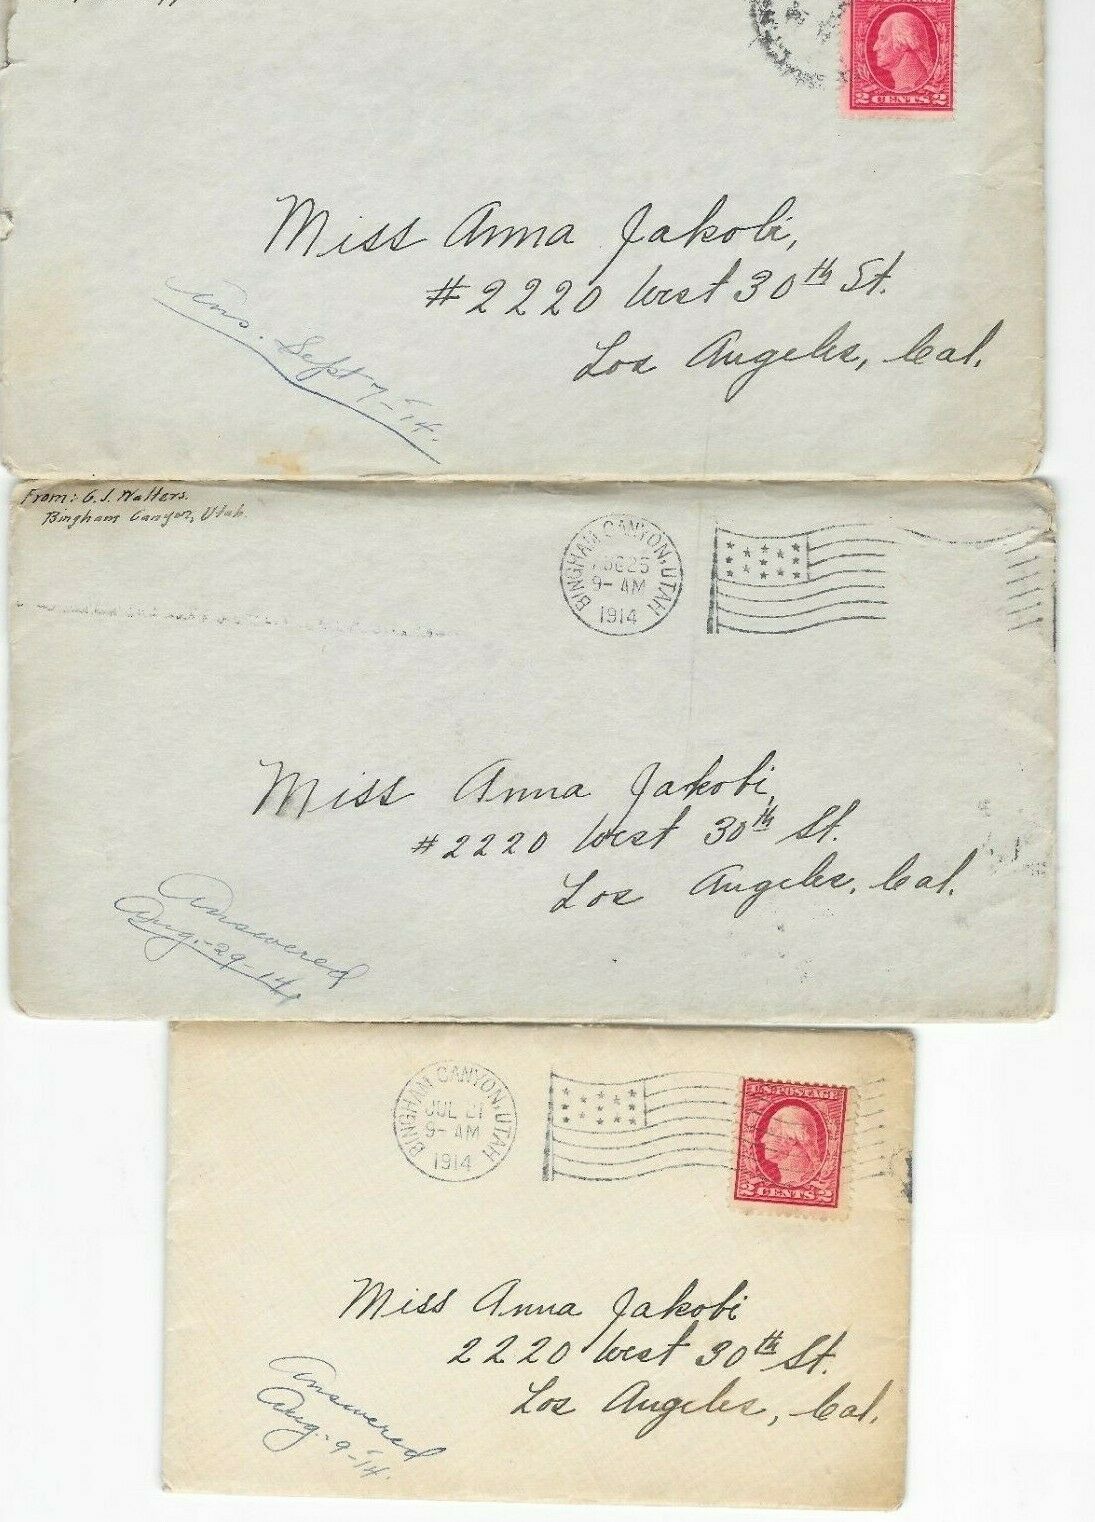 2 CENTS 2
Miss Anna Jakobi,
#2220 West 30th St.
Los Angeles, Cal.
Ans. Sept 7-'14.
From: G. J. Walters.
Bingham Canyon, Utah
BINGHAM CANYON, UTAH
AUG 25
9-AM
1914
Miss Anna Jakobi,
#2220 West 30th St.
Los Angeles, Cal.
Answered
Aug.-29-14
BINGHAM CANYON, UTAH
JUL 21
9-AM
1914
U.S. POSTAGE
2 CENTS 2
Miss Anna Jakobi
2220 West 30th St.
Los Angeles, Cal.
Answered
Aug.-9-'14.